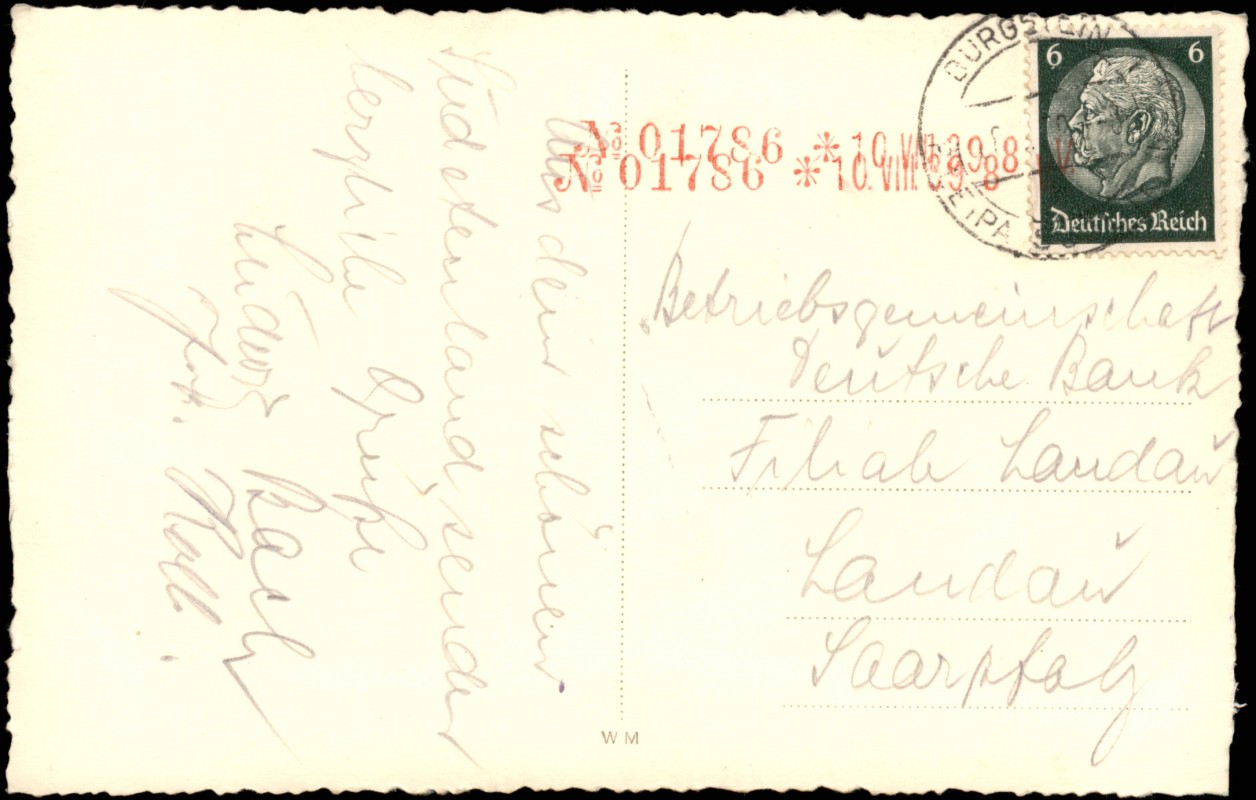 Aus dem schönen
Sudetenland senden
herzliche Grüße
Ludwig Bach
BURGSTEIN
6 6
Deutsches Reich
No 01786 * 10.VIII.39.8
No 01786 * 10.VIII.39 8
Betriebsgemeinschaft
Deutsche Bank
Filiale Landau
Landau
Saarpfalz
WM